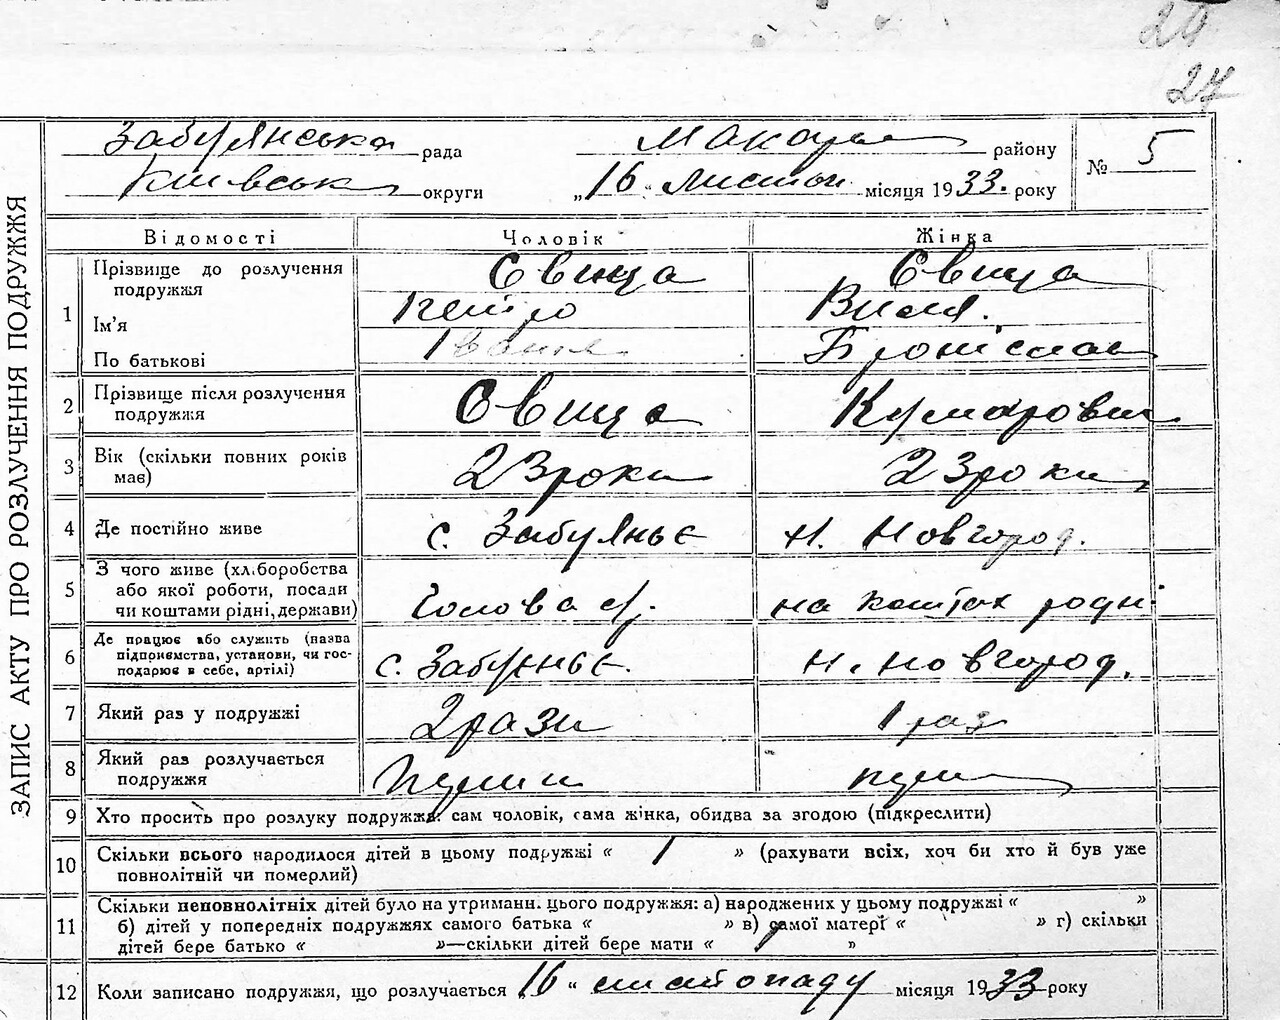 24
27
Забуянська рада Макарів району № 5
Київськ округи „16 “ листоп місяця 1933. року
ЗАПИС АКТУ ПРО РОЗЛУЧЕННЯ ПОДРУЖЖЯ
Відомості Чоловік Жінка
1 Прізвище до розлучення подружжя Свища Свища
Ім'я Петро
По батькові Івани Броніслав
2 Прізвище після розлучення подружжя Свища
3 Вік (скільки повних років має) 23 роки 23 роки
4 Де постійно живе с. Забуяньє Н. Новгород.
5 З чого живе (хліборобства або якої роботи, посади чи коштами рідні, держави) Голова с/р. на коштах родні
6 Де працює або служить (назва підприємства, установи, чи господарює в себе, артілі) с. Забуяньє. Н. Новгород.
7 Який раз у подружжі 2 рази 1 раз
8 Який раз розлучається подружжя
9 Хто просить про розлуку подружжя: сам чоловік, сама жінка, обидва за згодою (підкреслити)
10 Скільки всього народилося дітей в цьому подружжі « 1 » (рахувати всіх, хоч би хто й був уже
повнолітній чи померлий)
11 Скільки неповнолітніх дітей було на утриманн. цього подружжя: а) народжених у цьому подружжі « »
б) дітей у попередніх подружжях самого батька « » в) самої матері « » г) скільки
дітей бере батько « »—скільки дітей бере мати « 1 »
12 Коли записано подружжя, що розлучається 16 “ листопаду місяця 1933 року